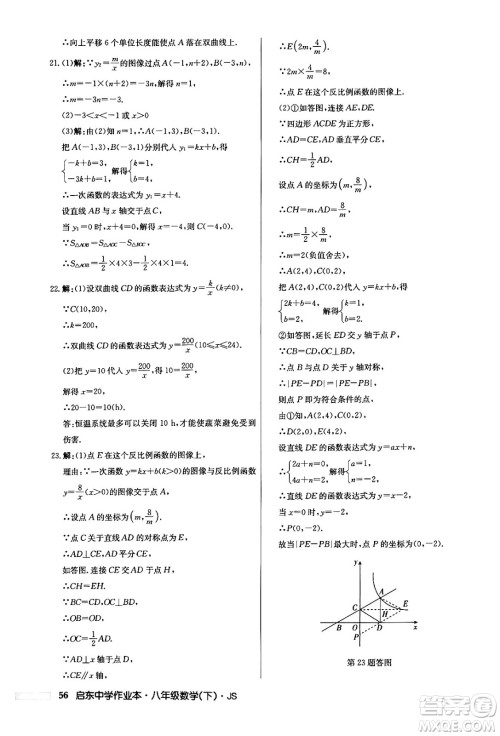 ∴向上平移 6 个单位长度能使点 A 落在双曲线上.
21. (1)解:∵y₂=m/x的图像过点 A(-1,3),
∴m=-1×3=-3.
∴m=-3.
(2)-3<x<-1 或 x>0
(3)解:由(2)知 n=1,
把 A(-1,3),B(-3,1)分别代入 y₁=kx+b,得
{-k+b=3, -3k+b=1. 解得{k=1, b=4.
∴一次函数的表达式为 y₁=x+4.
设直线 AB 与 x 轴交于点 C,
当 y₁=0 时,x+4=0,得 x=-4.
∵S△AOB=S△AOC-S△BOC,
∴S△AOB=1/2×4×3-1/2×4×1=4.
22. 解:(1)设双曲线 CD 的函数表达式为 y=k/x(k≠0),
∵C(10,20),
∴k=200.
∴双曲线 CD 的函数表达式为 y=200/x(10≤x≤24).
(2)把 y=10 代入 y=200/x,得 10=200/x.
解得 x=20.
∴20-10=10(h).
答:恒温系统最多可以关闭 10 h,才能使蔬菜避免受到
伤害.
23. 解:(1)点 E 在这个反比例函数的图像上.
理由:∵一次函数 y=kx+b 的图像与反比例函数
y=8/x(x>0)的图像交于点 A,
∴设点 A 的坐标为(m,8/m).
∵点 C 关于直线 AD 的对称点为点 E,
∴AD⊥CE,AD 平分 CE.
如答图,连接 CE 交 AD 于点 H.
∴CH=EH.
∵AD⊥x 轴于点 D,
∴CE∥x 轴,∠ADO=90°.
∴∠CDO+∠ADC=90°.
∵CB=CD,
∴∠CBO=∠CDO.
∵∠BAD+∠CBO=90°,
∴∠CAD=∠CDA.
∴CH 为△ACD 边 AD 上的中线.
∴C(0,4/m).
∴E(2m,4/m).
∵2m×4/m=8,
∴点 E 在这个反比例函数的图像上.
(2)①如答图,连接 AE,DE.
∵四边形 ACDE 为正方形,
∴AD=CE,AD 垂直平分 CE.
∴CH=1/2AD.
设点 A 的坐标为(m,8/m),
∴CH=m,AD=8/m.
∴m=1/2×8/m.
∴m=2(负值舍去).
∴A(2,4),C(0,2).
把 A(2,4),C(0,2)代入 y=kx+b,得
{2k+b=4, b=2. 解得{k=1, b=2.
②如答图,延长 ED 交 y 轴于点 P.
∵点 B 与点 D 关于 y 轴对称,
∴|PE-PB|=|PE-PD|.
∴点 P 即为符合条件的点.
由①知,A(2,4),C(0,2),
∴D(2,0),E(4,2).
设直线 DE 的函数表达式为 y=ax+n,
∴{2a+n=0, 4a+n=2. 解得{a=1, n=-2.
∴直线 DE 的函数表达式为 y=x-2.
当 x=0 时,y=-2.
∴P(0,-2).
故当|PE-PB|最大时,点 P 的坐标为(0,-2).
y
A
C
H
E
B
O
D
x
P
第 23 题答图
56 启东中学作业本·八年级数学(下)·JS